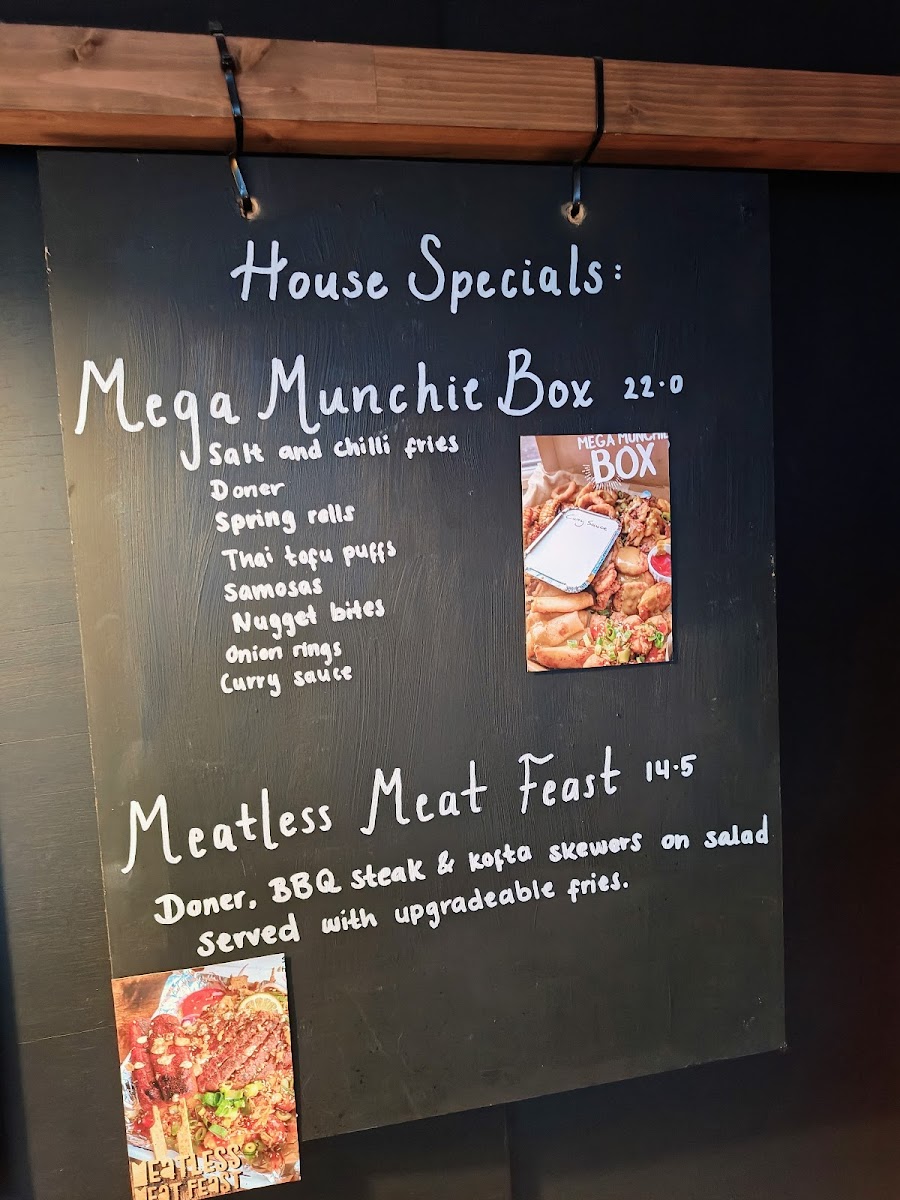 House Specials:
Mega Munchie Box 22.0
Salt and chilli fries
Doner
Spring rolls
Thai tofu puffs
Samosas
Nugget bites
Onion rings
Curry sauce
MEGA MUNCHIE
BOX
Curry Sauce
Meatless Meat Feast 14.5
Doner, BBQ steak & kofta skewers on salad
Served with upgradeable fries.
MEATLESS
MEAT FEAST